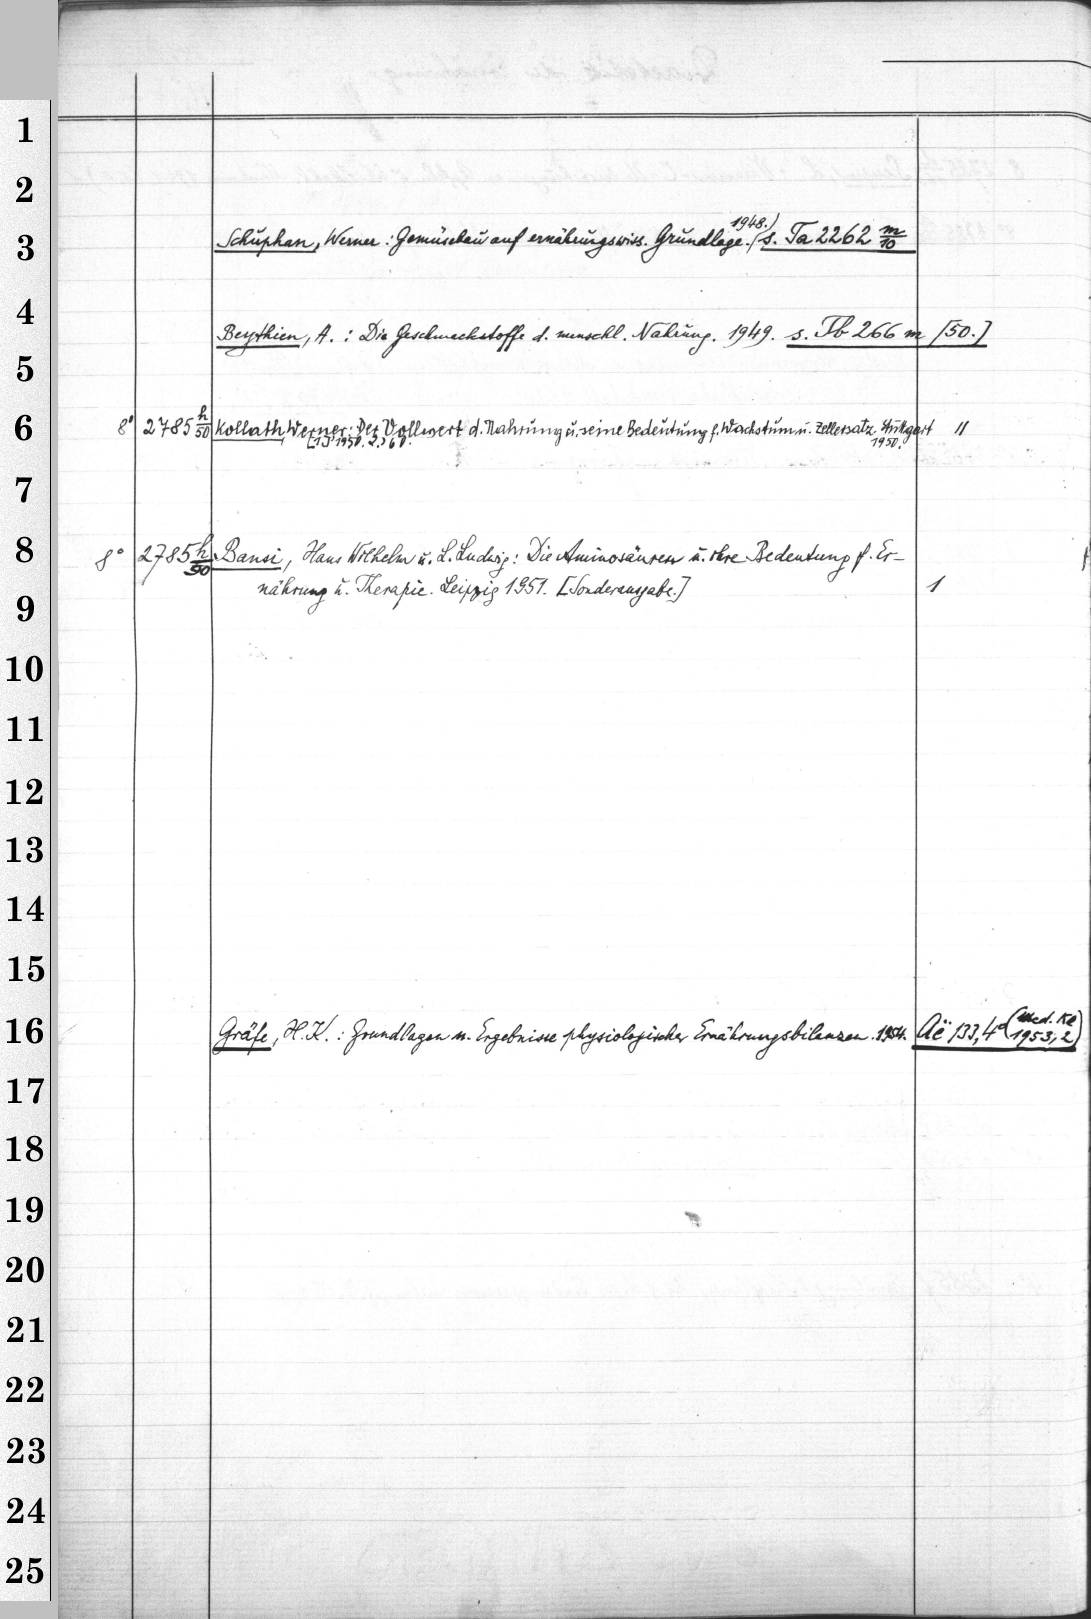 1
2
3 Schuphan, Werner: Gemüsebau auf ernährungswiss. Grundlage. (1948.) s. Ta 2262 m/10
4 Beythien, A.: Die Geschmackstoffe d. menschl. Nahrung. 1949. s. Tb 266 m [50.]
5
6 8° 2785 h/50 Kollath, Werner: Der Vollwert d. Nahrung u. seine Bedeutung f. Wachstum u. Zellersatz. Stuttgart 1950. II
[1.] 1950. 2.) 60.
7
8 8° 2785 h/50 Bansi, Hans Wilhelm u. L. Ludwig: Die Aminosäuren u. ihre Bedeutung f. Er-
9 nährung u. Therapie. Leipzig 1951. [Sonderausgabe.] 1
10
11
12
13
14
15
16 Gräfe, H.K.: Grundlagen u. Ergebnisse physiologischer Ernährungsbilanzen. 1954. Aë 133,4d (Med. Kl 1953, 2)
17
18
19
20
21
22
23
24
25